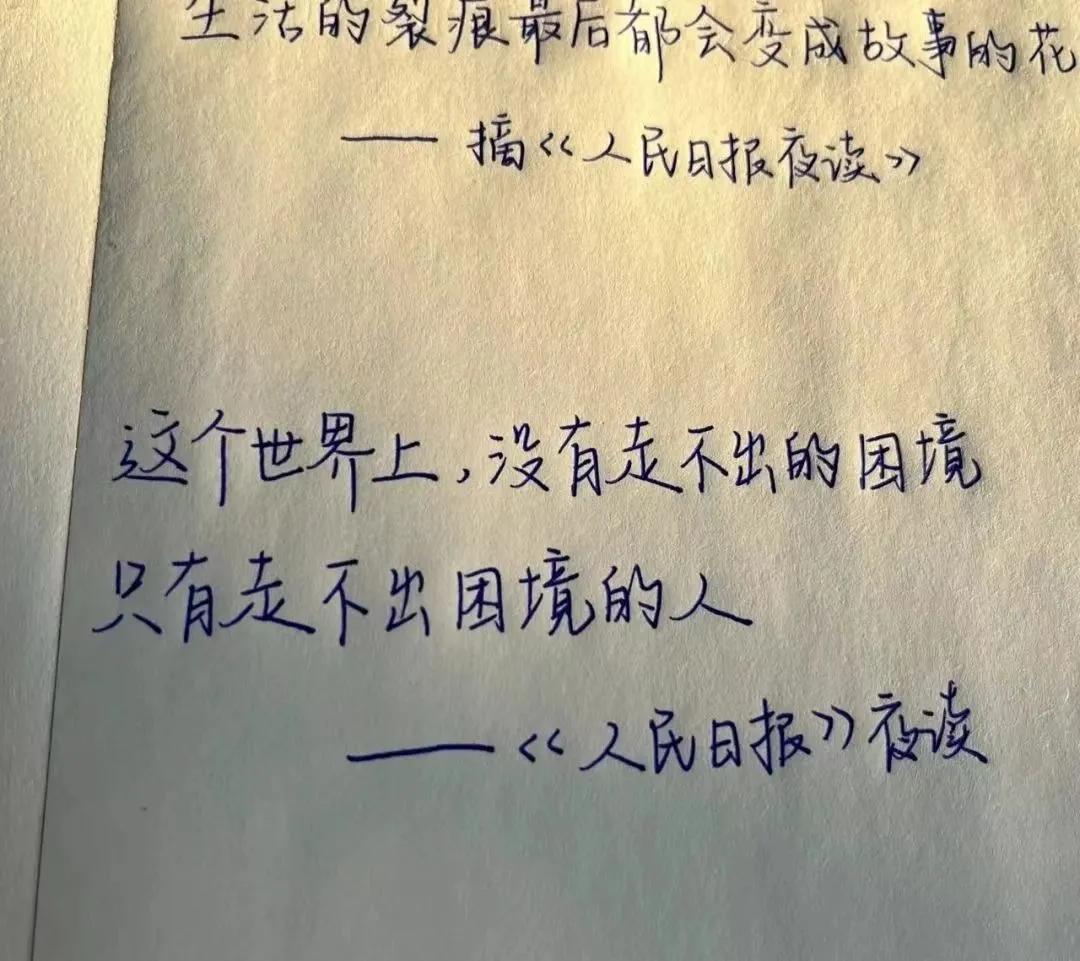 生活的裂痕最后都会变成故事的花
—— 摘《人民日报夜读》
这个世界上,没有走不出的困境
只有走不出困境的人
——《人民日报》夜读